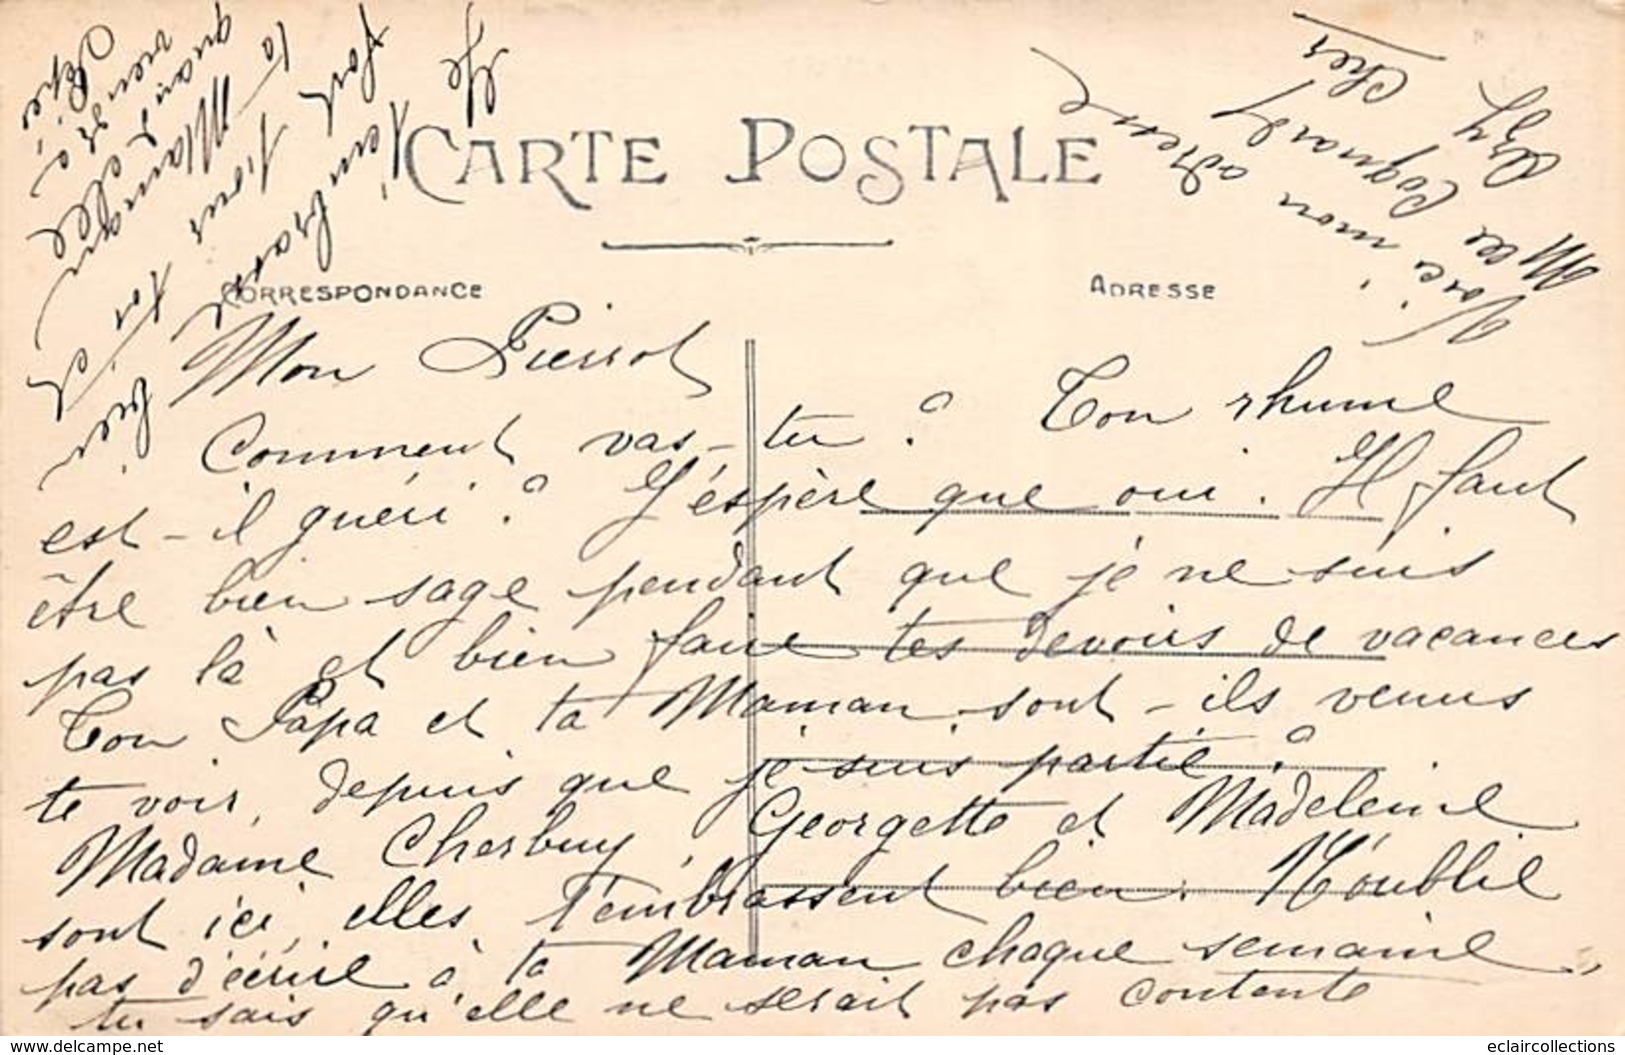 CARTE POSTALE
CORRESPONDANCE
ADRESSE
Mon Pierrot
Comment vas-tu ? Ton rhume
est-il guéri ? J'espère que oui. Il faut
être bien sage pendant que je ne suis
pas là et bien faire tes devoirs de vacances
Ton Papa et ta Maman sont-ils venus
te voir, depuis que je suis partie ?
Madame Cherbuy, Georgette et Madeleine
sont ici, elles t'embrassent bien. N'oublie
pas d'écrire à ta Maman chaque semaine,
tu sais qu'elle ne serait pas contente
Je
t'embrasse bien
fort pour toi et
ta Maman
quand elle
viendra
Voici mon adresse
Mlle Cognardy
Azy
Cher
delcampe.net
eclaircollections